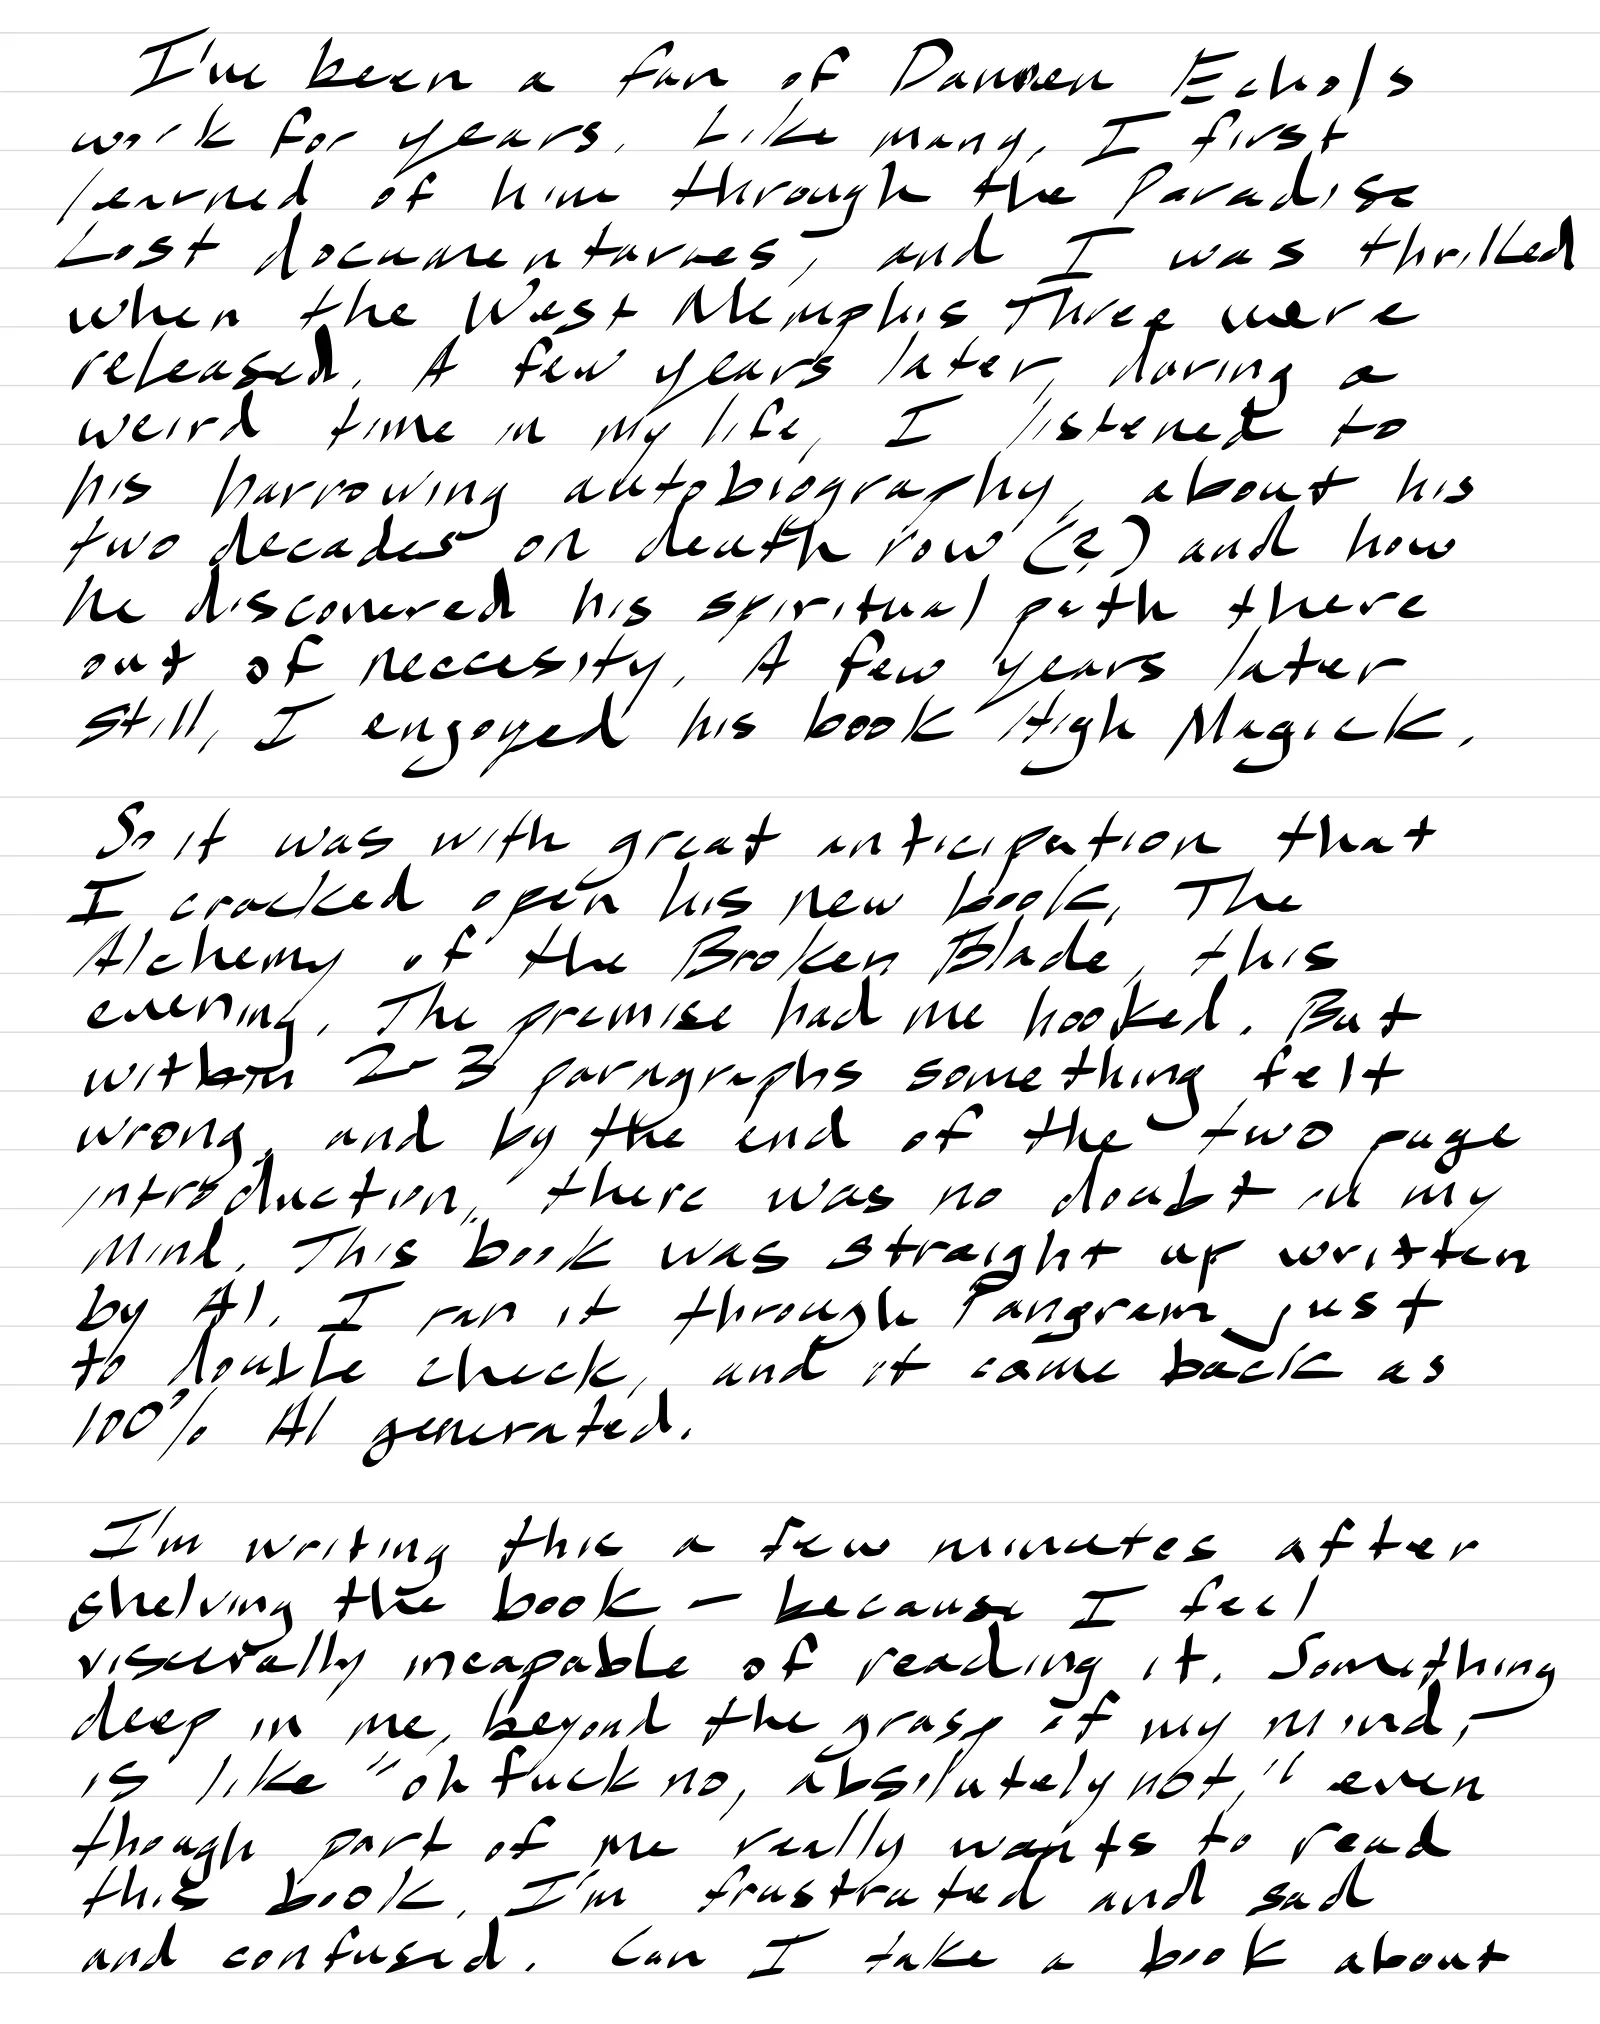 I've been a fan of Damien Echols
work for years. Like many, I first
learned of him through the Paradise
Lost documentaries, and I was thrilled
when the West Memphis Three were
released. A few years later, during a
weird time in my life, I listened to
his harrowing autobiography, about his
two decades on death row (?) and how
he discovered his spiritual path there
out of neccesity. A few years later
still, I enjoyed his book High Magick.
So it was with great anticipation that
I cracked open his new book, The
Alchemy of the Broken Blade, this
evening. The premise had me hooked. But
within 2-3 paragraphs something felt
wrong, and by the end of the two page
introduction, there was no doubt in my
mind. This book was straight up written
by AI. I ran it through Pangram just
to double check, and it came back as
100% AI generated.
I'm writing this a few minutes after
shelving the book – because I feel
viscerally incapable of reading it. Something
deep in me, beyond the grasp of my mind,
is like "oh fuck no, absolutely not," even
though part of me really wants to read
this book. I'm frustrated and sad
and confused. Can I take a book about